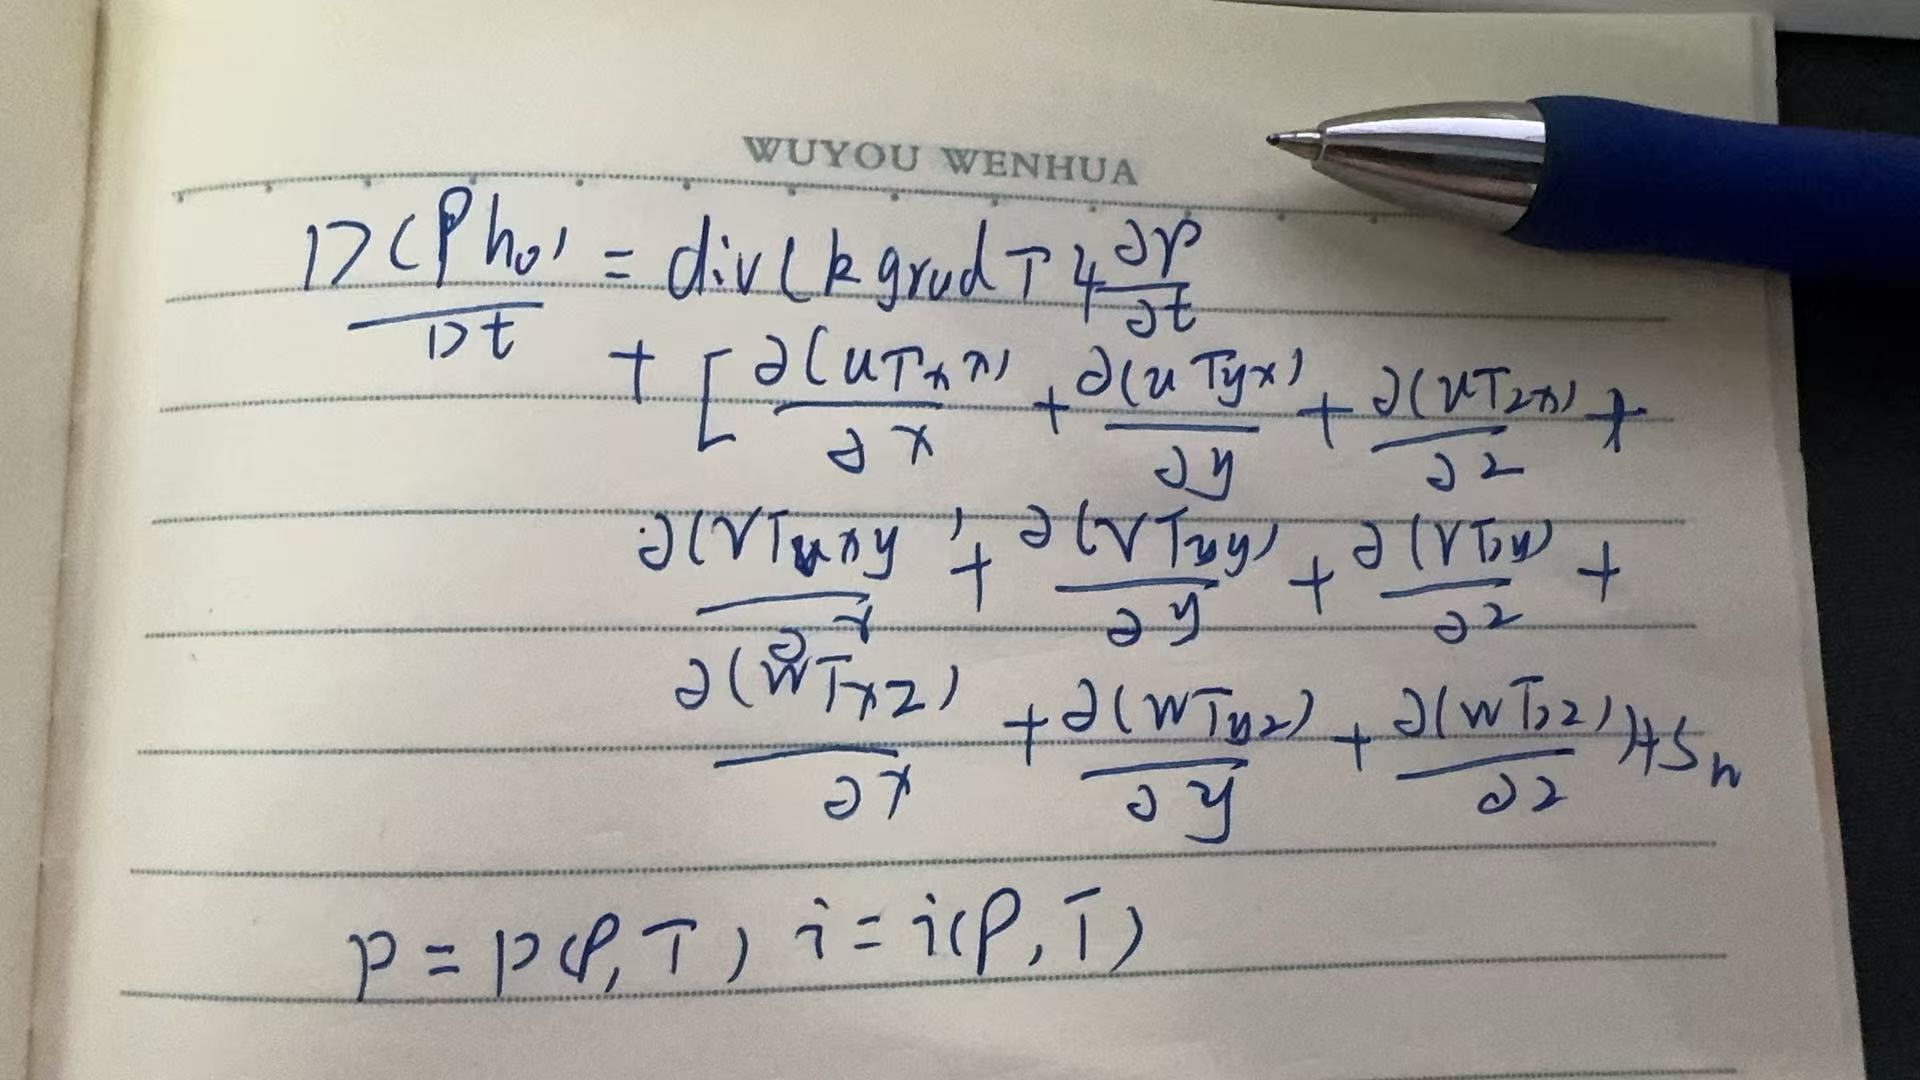 WUYOU WENHUA
D(ρh₀)/Dt = div(k grad T + ∂p/∂t
+ [∂(uτxx)/∂x + ∂(uτyx)/∂y + ∂(uτzx)/∂z +
∂(vτxy)/∂x + ∂(vτyy)/∂y + ∂(vτzy)/∂z +
∂(wτxz)/∂x + ∂(wτyz)/∂y + ∂(wτzz)/∂z] + Sh
p = p(ρ, T) i = i(ρ, T)